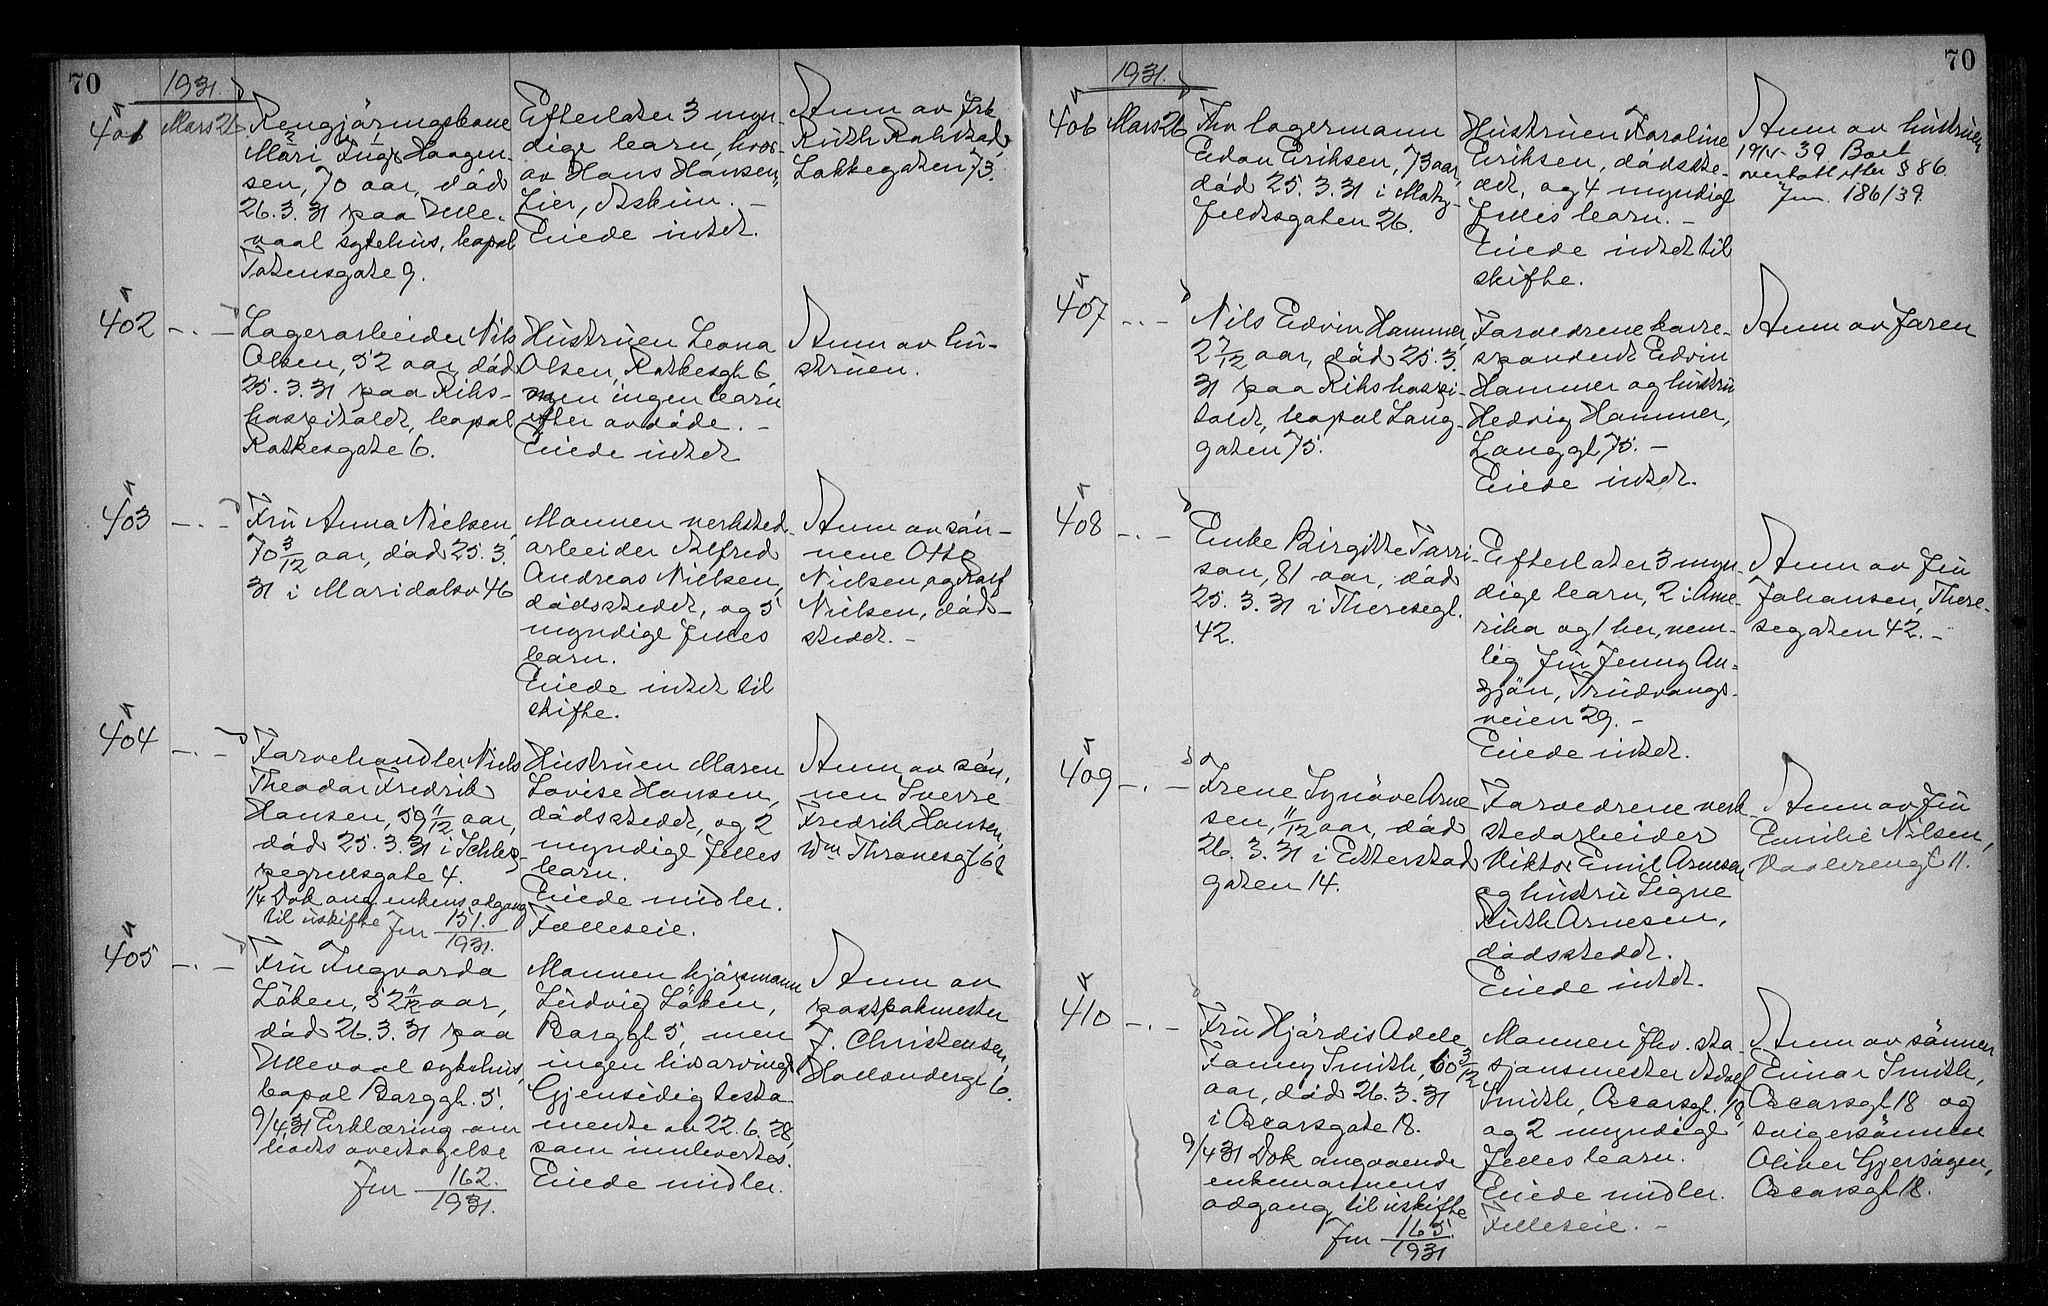 70
1931.
401
Mars 26
Rengjöringskone
Mari Inge Haagen-
sen, 70 aar, död
26.3.31 paa Ulle-
vaal sykehus, bopæl
Totensgate 9.
Efterlater 3 myn-
dige barn, hvor-
av Hans Hansen,
Lier, Askim. –
Eiede intet.
Anm av frk
Ruth
Lakkegaten 73.
402
-.-
Lagerarbeider Nils
Olsen, 52 aar, död
25.3.31 paa Riks-
hospitalet, bopæl
Ratkesgate 6.
Hustruen Leona
Olsen, Ratkesgt. 6,
men ingen barn
efter avdöde. –
Eiede intet
Anm av hu-
struen.
403
-.-
Fru Anna Nielsen,
70 3/12 aar, död 25.3.
31 i Maridalsv 46
Mannen verksted-
arbeider Alfred
Andreas Nielsen,
dödsstedet, og 5
myndige fælles
barn.
Eiede intet til
skifte.
Anm av sön-
nene Otto
Nielsen, og Rolf
Nielsen, döds-
stedet. –
404
-.-
Farvehandler Niels
Theodor Fredrik
Hansen, 59 11/12 aar,
död 25.3.31 i Schlep-
pegrellsgate 4.
Dok ang enkens adgang
til uskifte Jnr 151./1931.
Hustruen Maren
Lovise Hansen,
dödsstedet, og 2
myndige fælles
barn.
Eiede midler.
Fælleseie.
Anm av sön-
nen Sverre
Fredrik Hansen,
Wm Thranesgt 68
405
-.-
Fru Ingvarda
Löken, 52 11/12 aar,
död 26.3.31 paa
Ullevaal sykehus,
bopæl Borggt. 5.
9/4 31 Erklæring om
boets overtagelse
Jnr 162./1931.
Mannen kjörsmann
Ludvig Löken,
Borggt 5, men
ingen livsarving.
Gjensidig testa-
mente av 22.6.28,
som innlevertes.
Eiede midler.
Anm av
postpakmester
J. Christensen,
Hollendergt 6.
70
1931.
406
Mars 26
Fhv lagermann
Edan Eriksen, 73 aar,
död 25.3.31 i Motz-
feldtsgaten 26.
Hustruen Karoline
Eriksen, dödsste-
det, og 4 myndige
fælles barn. –
Eiede intet til
skifte.
Anm av hustruen
19/4-39 Boet
overtatt etter § 86.
Jnr. 186/39.
407
-.-
Nils Edvin Hammer,
2 7/12 aar, död 25.3.
31 paa Rikshospi-
talet, bopæl Lang-
gaten 75.
Forældrene korre-
spondent Edvin
Hammer og hustru
Hedvig Hammer,
Langgt 75. –
Eiede intet.
Anm av faren
408
-.-
Enke Birgitte Torri-
son, 81 aar, död
25.3.31 i Theresegt.
42.
Efterlater 3 myn-
dige barn, 2 i Ame-
rika og 1 her, nem-
lig fru Jenny An-
gjön, Trudvangs-
veien 29. –
Eiede intet.
Anm av fru
Johansen, There-
segaten 42. –
409
-.-
Irene Synöve Arne
sen, 11/12 aar, död
26.3.31 i Etterstad
gaten 14.
Forældrene verk-
stedarbeider
Viktor Emil Arnesen
og hustru Signe
Ruth Arnesen,
dödsstedet.
Eiede intet.
Anm av fru
Emilie Nilsen,
Vaalerengt 11.
410
-.-
Fru Hjördis Adele
Fanny Smith, 60 3/12
aar, död 26.3.31
i Oscarsgate 18.
9/4 31 Dok angaaende
enkemannens
adgang til uskifte
Jnr 165./1931
Mannen fhv. sta-
sjonsmester Adolf
Smith, Oscarsgt. 18,
og 2 myndige
fælles barn.
Eiede midler.
Fælleseie. –
Anm av sönnen
Einar Smith,
Oscarsgt 18 og
svigersönnen
Oliver Gjersögen,
Oscarsgt 18.